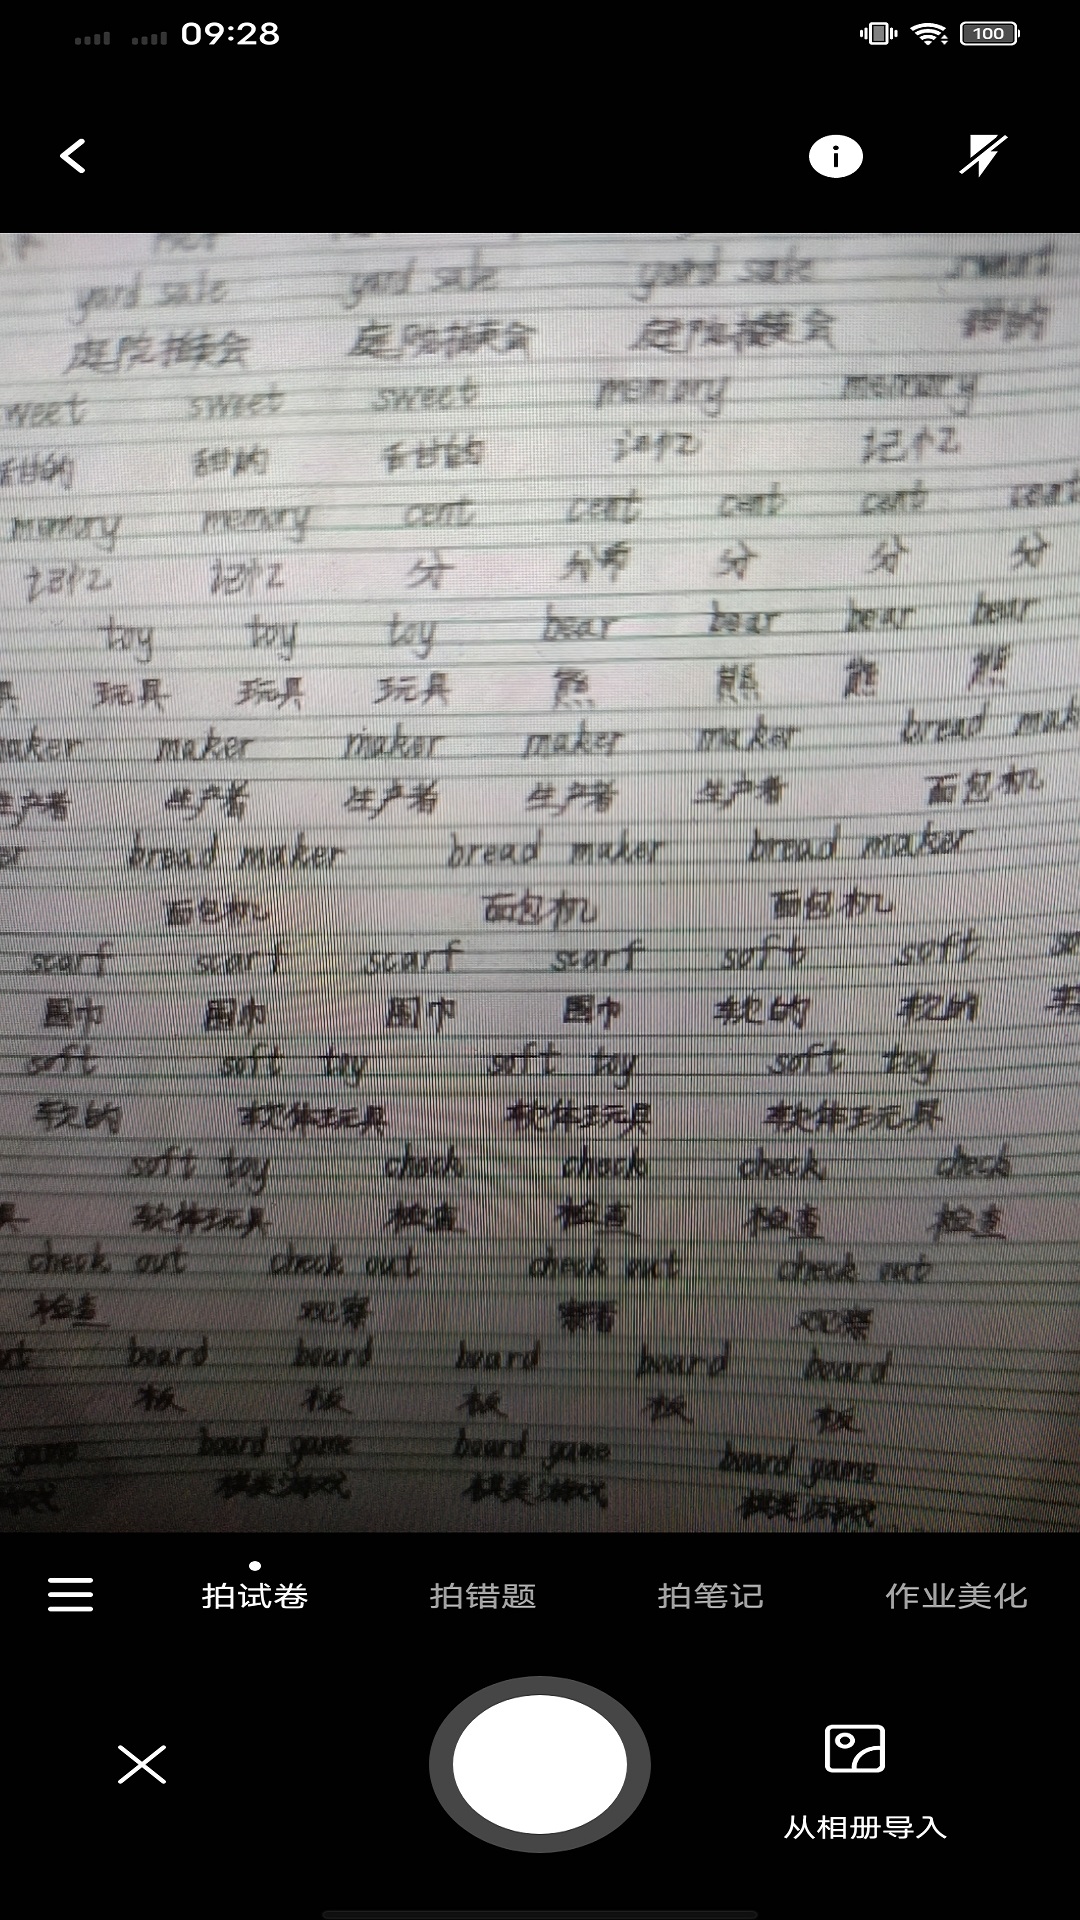 09:28
100
yard sale yard sale yard sale sweet
庭院拍卖会 庭院拍卖会 庭院拍卖会 甜的
weet sweet sweet memory memory
甜的 甜的 甜的 记忆 记忆
memory memory cent cent cent cent cent
记忆 记忆 分 分 分 分
toy toy toy bear bear bear bear
具 玩具 玩具 玩具 熊 熊 熊 熊
maker maker maker maker maker bread mak
生产者 生产者 生产者 生产者 生产者 面包机
er bread maker bread maker bread maker
面包机 面包机 面包机
scarf scarf scarf scarf soft soft so
围巾 围巾 围巾 围巾 软的 软的 软
soft soft toy soft toy soft toy
软的 软体玩具 软体玩具 软体玩具
soft toy check check check check
具 软体玩具 检查 检查 检查 检查
check out check out check out check out
检查 观察 观察
board board board board board
板 板 板 板 板
game board game board game board game
游戏 棋类游戏 棋类游戏 棋类游戏
拍试卷 拍错题 拍笔记 作业美化
从相册导入